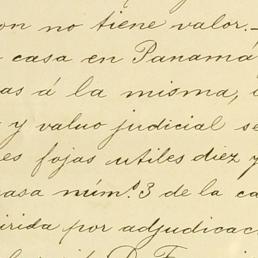 on no tiene valor.-
casa en Panamá
as á la misma,
y valuo judicial se
es fojas utiles diez y
asa núm.º 3 de la ca
irida por adjudicac